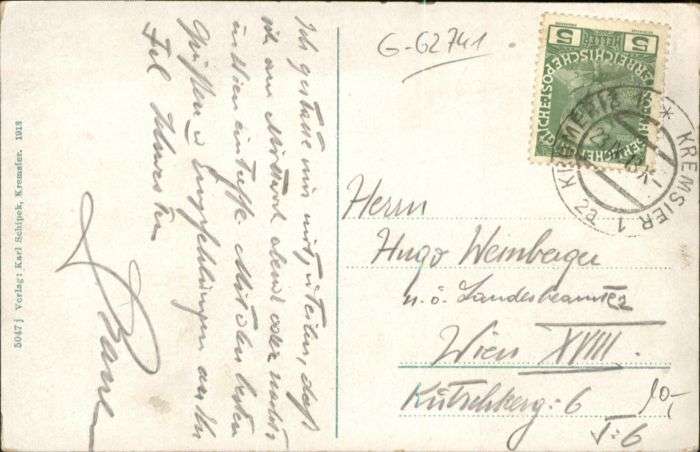 Ich gestatte mir mitzuteilen, daß
ich am Mittwoch abend oder nachts
in Wien eintreffe. Mit den besten
Grüßen u Empfehlungen an Ihr
Frl Schwester
5047 j Verlag: Karl Schipek, Kremsier. 1913
G-62741
5 5
KREMSIER 1
Herrn
Hugo Weinberger
n. ö. Landesbeamter
Wien XVIII.
Kutschkerg: 6
10,-